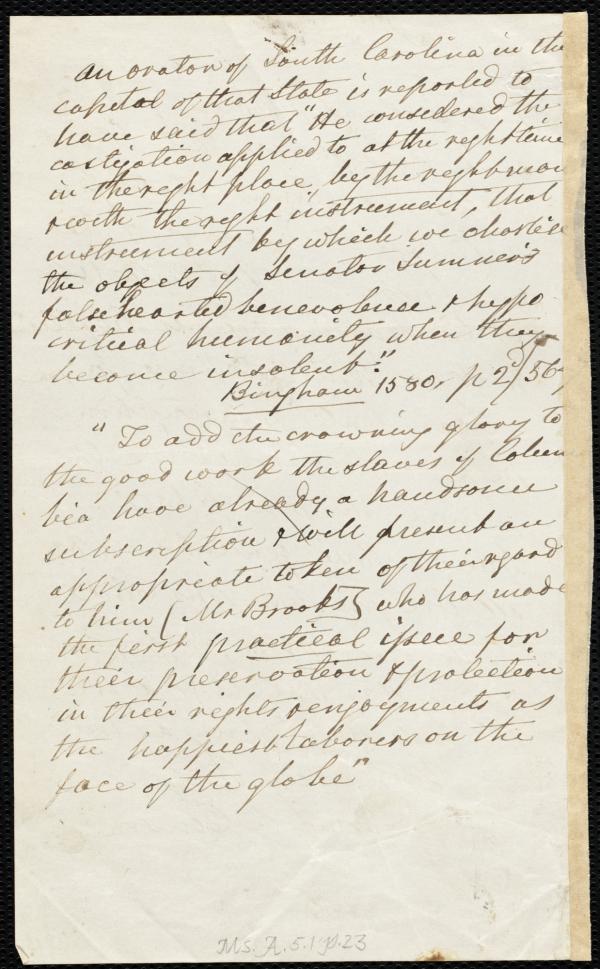 an orator of South Carolina in the
capital of that State is reported to
have said that "He considered the
castigation applied to at the right time
in the right place, by the right man
& with the right instrument, that
instrument by which we chastise
the objects of Senator Sumner's
falsehearted benevolence & hypo
critical humanity when they
become insolent."
Bingham 1580, p 2d/56
"To add the crowning glory to
the good work the slaves of Colum
bia have already a handsome
subscription & will present an
appropriate token of their regard
to him [Mr Brooks] who has made
the first practical issue for
their preservation & protection
in their rights & enjoyments as
the happiest laborers on the
face of the globe"
Ms. A. 5.1 p. 23